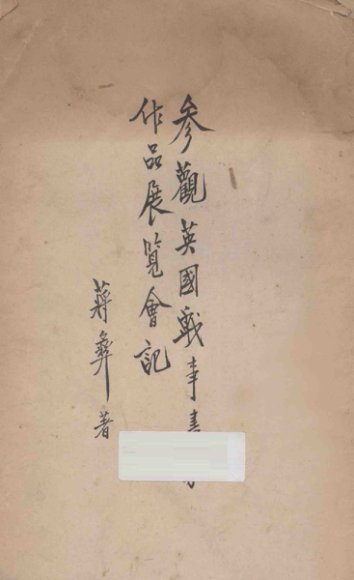 參觀英國戰事畫
作品展覽會記
蔣彝著